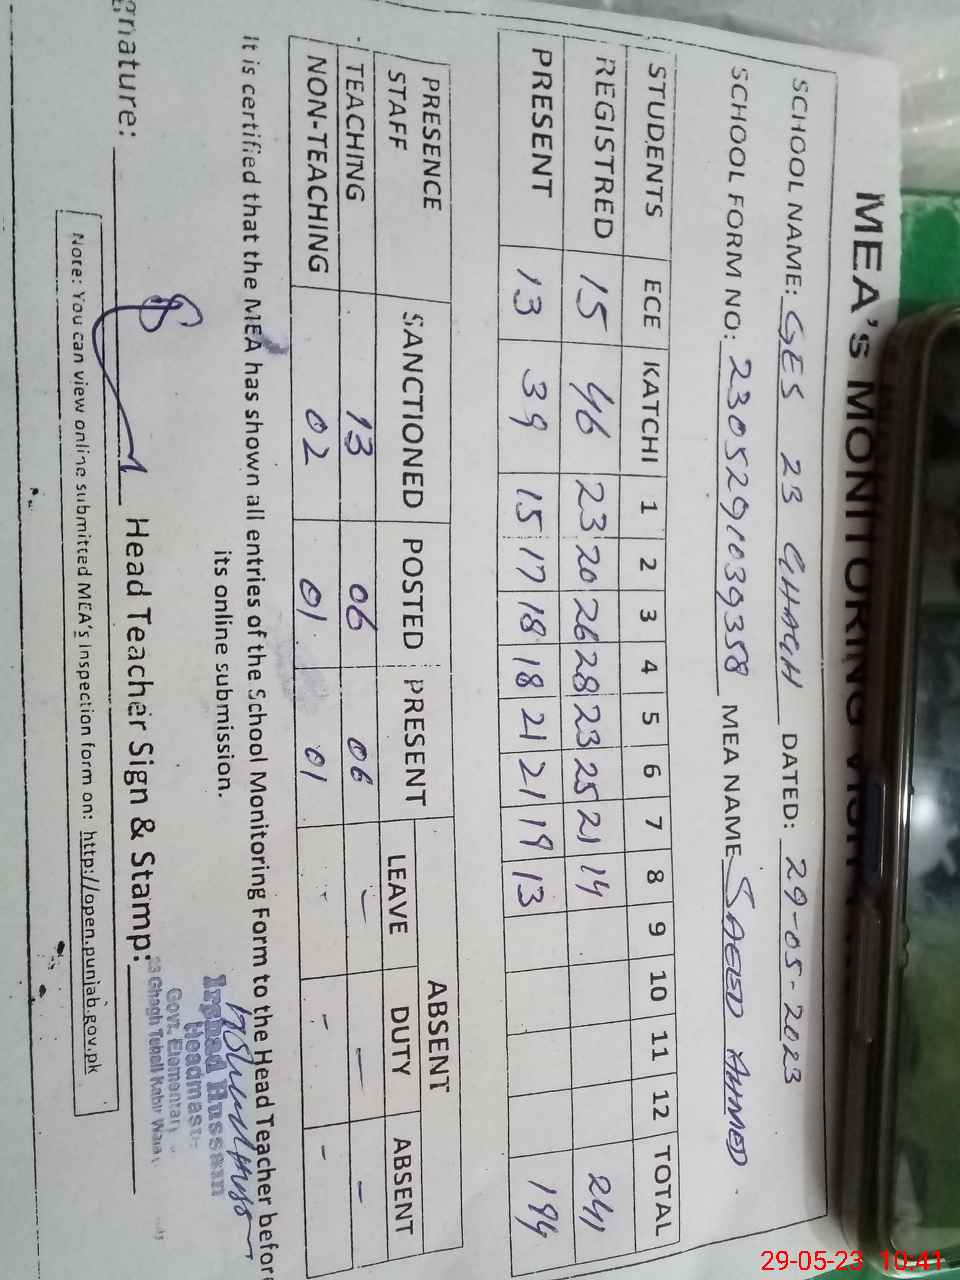 MEA's MONITORING
SCHOOL NAME: GES 23 GHAGH DATED: 29-05-2023
SCHOOL FORM NO: 2305291039358 MEA NAME SAEED AHMED
STUDENTS ECE KATCHI 1 2 3 4 5 6 7 8 9 10 11 12 TOTAL
REGISTRED 15 46 23 20 26 28 23 25 21 14 241
PRESENT 13 39 15 17 18 18 21 21 19 13 194
PRESENCE STAFF SANCTIONED POSTED PRESENT ABSENT
LEAVE DUTY ABSENT
TEACHING 13 06 06 - - -
NON-TEACHING 02 01 01 - - -
It is certified that the MEA has shown all entries of the School Monitoring Form to the Head Teacher before
its online submission.
Irshad Hussain
Headmaster
Govt. Elementary
23 Ghagh Tehsil Kabir Wala
gnature: Head Teacher Sign & Stamp:
Note: You can view online submitted MEA's inspection form on: http://open.punjab.gov.pk
29-05-23 10:41